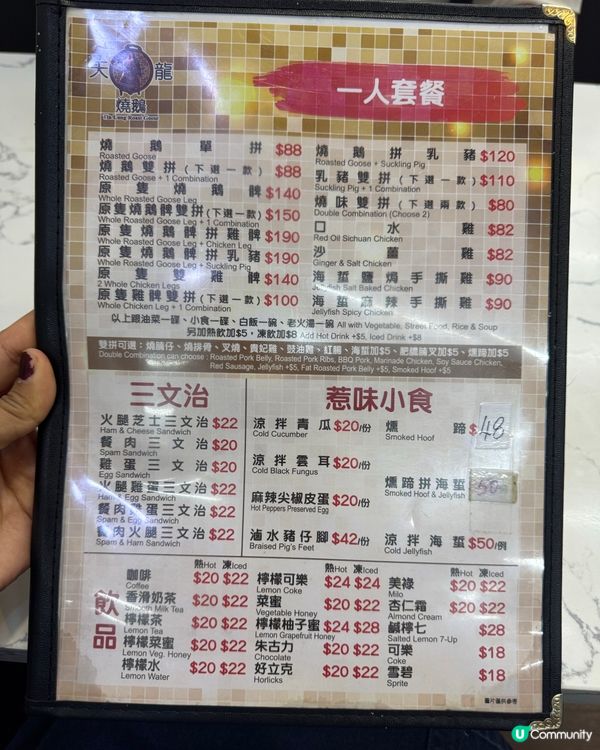 天 龍
燒鵝
Tin Lung Roast Goose
一人套餐
燒鵝單拼 $88
Roasted Goose
燒鵝雙拼(下選一款) $88
Roasted Goose + 1 Combination
原隻燒鵝髀 $140
Whole Roasted Goose Leg
原隻燒鵝髀雙拼(下選一款) $150
Whole Roasted Goose Leg + 1 Combination
原隻燒鵝髀拼雞髀 $190
Whole Roasted Goose Leg + Chicken Leg
原隻燒鵝髀拼乳豬 $190
Whole Roasted Goose Leg + Suckling Pig
原隻雙雞髀 $140
2 Whole Chicken Legs
原隻雞髀雙拼(下選一款) $100
Whole Chicken Leg + 1 Combination
燒鵝拼乳豬 $120
Roasted Goose + Suckling Pig
乳豬雙拼(下選一款) $110
Suckling Pig + 1 Combination
燒味雙拼(下選兩款) $80
Double Combination (Choose 2)
口水雞 $82
Red Oil Sichuan Chicken
沙薑雞 $82
Ginger & Salt Chicken
海蜇鹽焗手撕雞 $90
Jellyfish Salt Baked Chicken
海蜇麻辣手撕雞 $90
Jellyfish Spicy Chicken
以上跟油菜一碟、小食一碟、白飯一碗、老火湯一碗 All with Vegetable, Street Food, Rice & Soup
另加熱飲加$5,凍飲加$8 Add Hot Drink +$5, Iced Drink +$8
雙拼可選:燒腩仔、燒排骨、叉燒、貴妃雞、豉油雞、紅腸、海蜇加$5、肥燶腩叉加$5、燻蹄加$5
Double Combination can choose : Roasted Pork Belly, Roasted Pork Ribs, BBQ Pork, Marinade Chicken, Soy Sauce Chicken,
Red Sausage, Jellyfish +$5, Fat Roasted Pork Belly +$5, Smoked Hoof +$5
三文治
火腿芝士三文治 $22
Ham & Cheese Sandwich
餐肉三文治 $20
Spam Sandwich
雞蛋三文治 $20
Egg Sandwich
火腿雞蛋三文治 $22
Ham & Egg Sandwich
餐肉雞蛋三文治 $22
Spam & Egg Sandwich
餐肉火腿三文治 $22
Spam & Ham Sandwich
惹味小食
涼拌青瓜 $20/份
Cold Cucumber
涼拌雲耳 $20/份
Cold Black Fungus
麻辣尖椒皮蛋 $20/份
Hot Peppers Preserved Egg
滷水豬仔腳 $42/份
Braised Pig's Feet
燻蹄 $48
Smoked Hoof
燻蹄拼海蜇 50
Smoked Hoof & Jellyfish
涼拌海蜇 $50/例
Cold Jellyfish
飲品
熱Hot 凍Iced
咖啡 $20 $22
Coffee
香滑奶茶 $20 $22
Smooth Milk Tea
檸檬茶 $20 $22
Lemon Tea
檸檬菜蜜 $20 $22
Lemon Veg. Honey
檸檬水 $20 $22
Lemon Water
熱Hot 凍Iced
檸檬可樂 $24 $24
Lemon Coke
菜蜜 $20 $22
Vegetable Honey
檸檬柚子蜜 $24 $28
Lemon Grapefruit Honey
朱古力 $20 $22
Chocolate
好立克 $20 $22
Horlicks
熱Hot 凍Iced
美祿 $20 $22
Milo
杏仁霜 $20 $22
Almond Cream
鹹檸七 $28
Salted Lemon 7-Up
可樂 $18
Coke
雪碧 $18
Sprite
圖片僅供參考
U Community